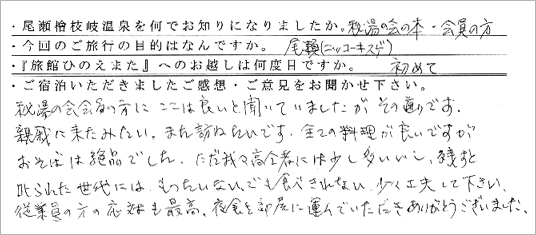 ・尾瀬檜枝岐温泉を何でお知りになりましたか。秘湯の会の本・会員の方
・今回のご旅行の目的はなんですか。 尾瀬(ニッコーキスゲ)
・『旅館ひのえまた』へのお越しは何度目ですか。 初めて
・ご宿泊いただきましたご感想・ご意見をお聞かせ下さい。
秘湯の会会員の方に ここは良いと聞いていましたが その通りです。
親戚に来たみたい。また訪ねたいです。全ての料理が良いですが
おそばは絶品でした。ただ我々高令者には少し多いし、残すと
叱られた世代には もったいない、でも食べきれない。少し工夫して下さい。
従業員の方の応対も最高、夜食を部屋に運んでいただきありがとうございました。